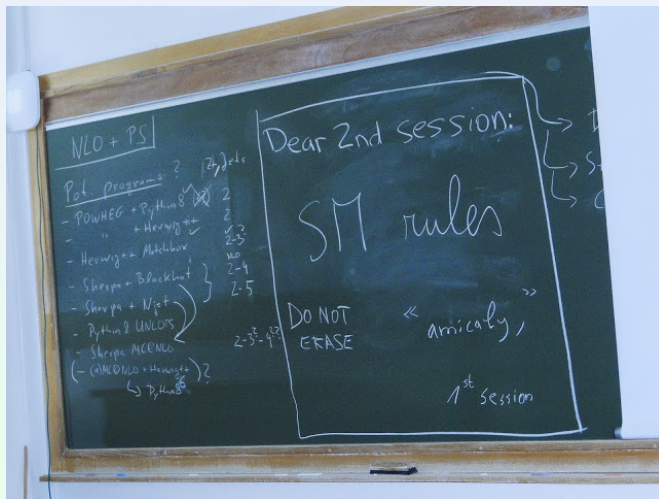 NLO + PS
Pot. programs ?
- POWHEG + Pythia8 2
- " + Herwig++ 2
- Herwig++ Matchbox 2-3?
NLO
- Sherpa + Blackhat 2-4
- Sherpa + Njet 2-5
- Pythia8 UNLOPS
- Sherpa MC@NLO 2-3?-4??
(- (a)MC@NLO + Herwig++) ?
↳ Pythia
Dear 2nd session:
SM rules
DO NOT
ERASE
« amicaly, »
1st session